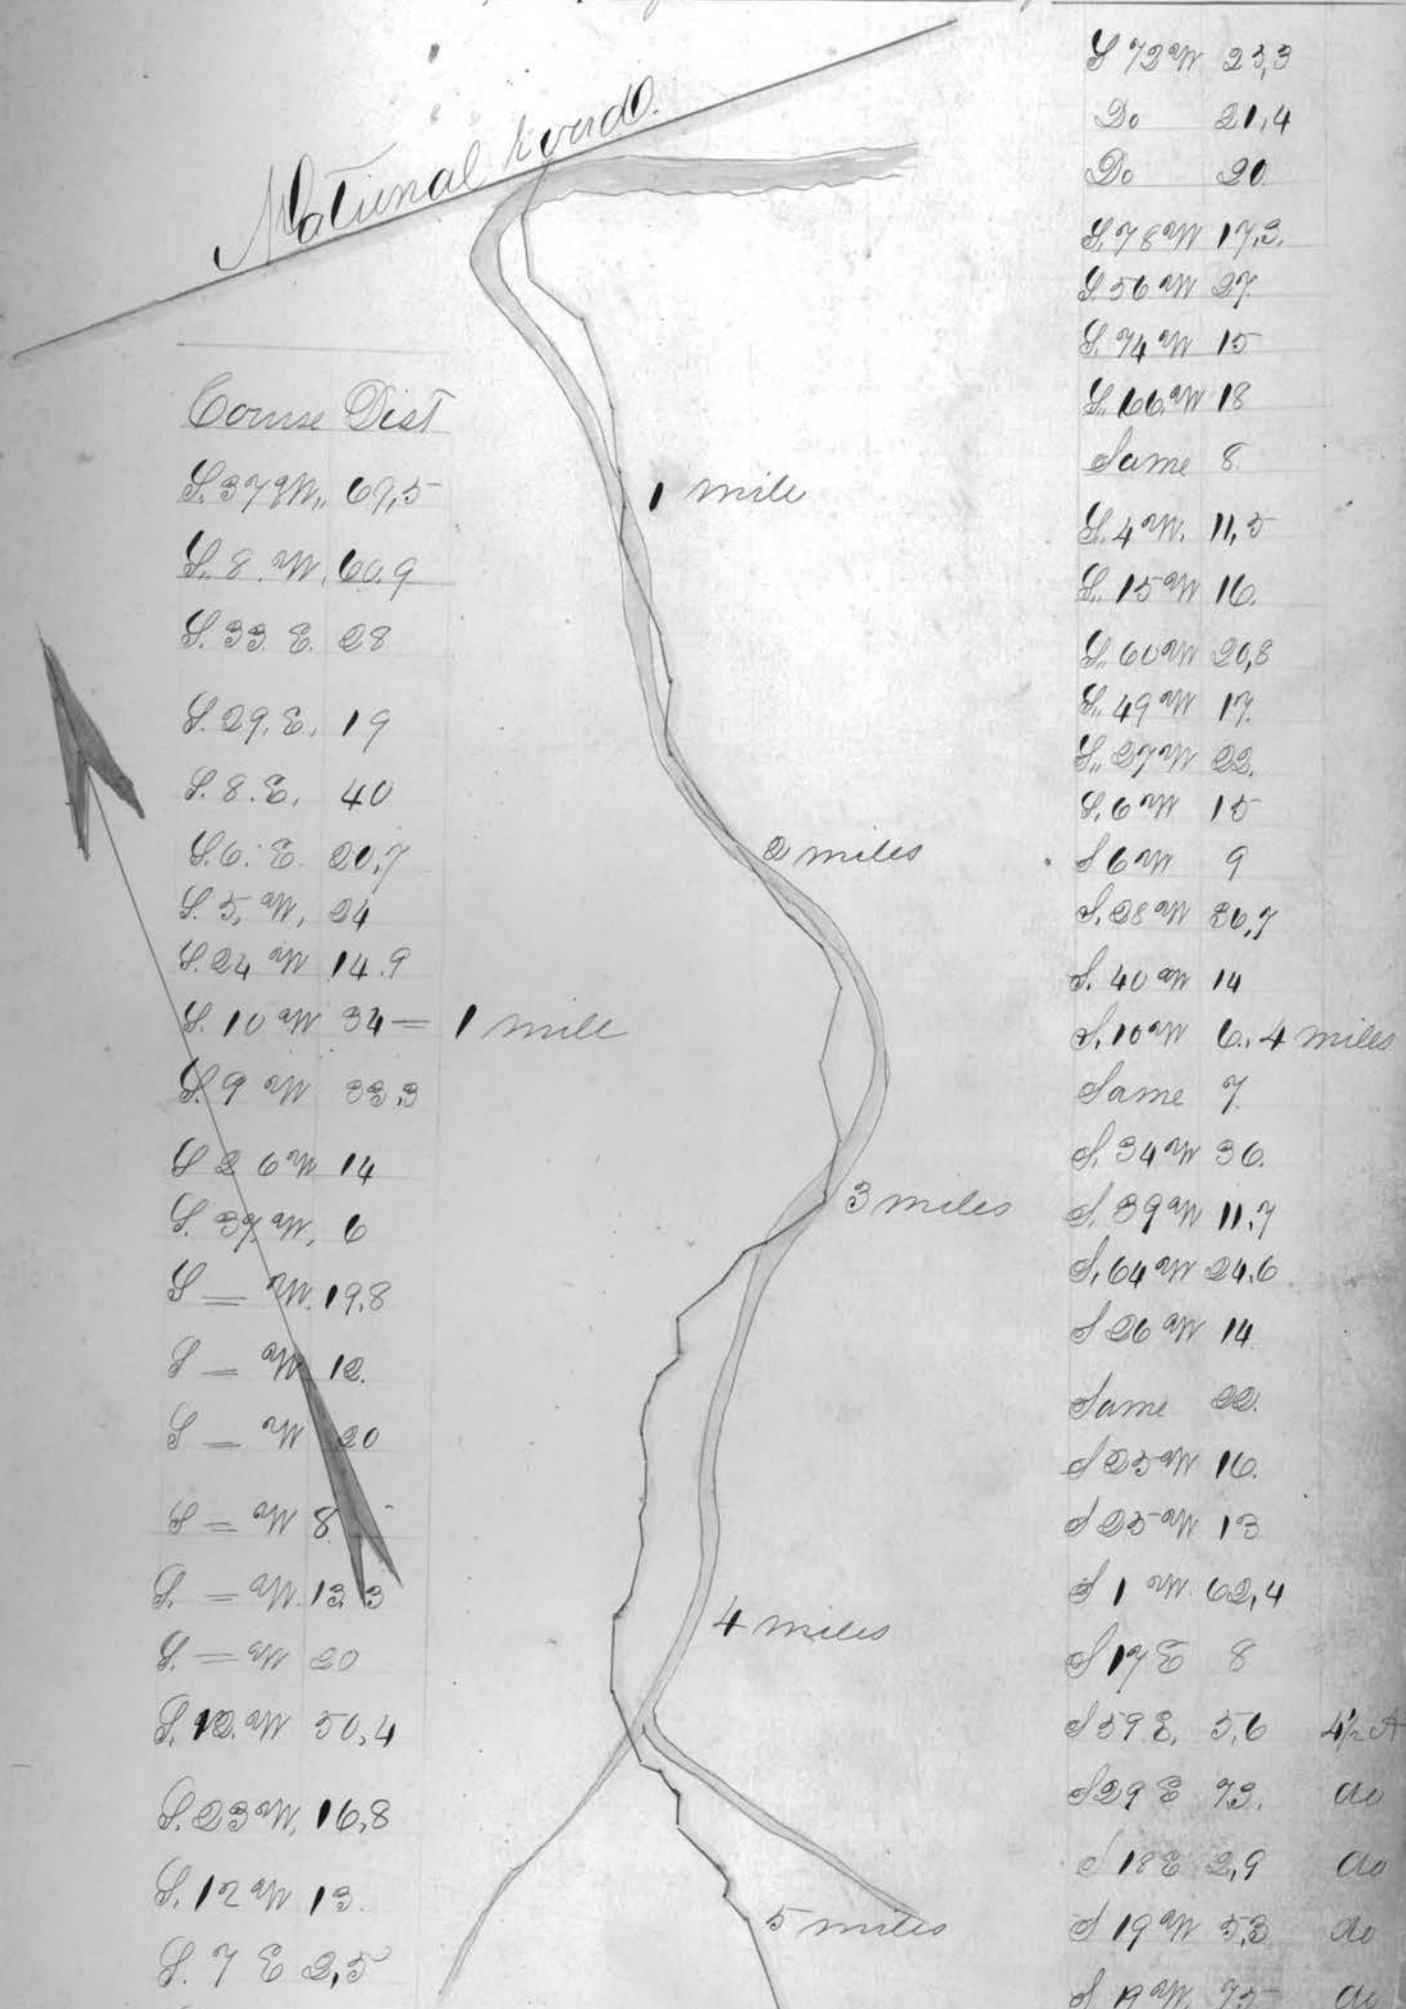 National Road.
Course Dist
S. 37 W. 67,5
S. 8. W. 60.9
S. 33 E. 28
S. 29. E. 19
S. 8. E. 40
S. 6. E. 20,7
S. 5, W, 24
S. 24 W 14.9
S. 10 W 34 = 1 mile
S. 9 W 33,3
S 26 W 14
S. 37 W, 6
S = W. 19,8
S = W 12.
S = W 20
S = W 8
S. = W. 13,3
S. = W 20
S. 12. W 50,4
S. 23 W, 16,8
S. 12 W 13.
S. 7 E 2,5
1 mile
2 miles
3 miles
4 miles
5 miles
S 72 W 23,3
Do 21,4
Do 20
S. 78 W 17,3.
S. 56 W 27.
S. 74 W 15
S. 66. W 18
Same 8
S. 4 W. 11,5
S. 15 W 16.
S. 60 W 20,8
S. 49 W 17.
S. 27 W 22.
S. 6 W 15
S 6 W 9
S. 28 W 36,7
S. 40 W 14
S. 10 W 6., 4 miles
Same 7.
S. 34 W 36.
S. 39 W 11,7
S. 64 W 24,6
S 26 W 14
Same 22.
S 25 W 16.
S 25 W 13
S 1 W. 62,4
S 17 E 8
S 59 E, 5,6 4½
S 29 E 73. do
S 18 E 2,9 do
S 19 W 5,3 do
S 19 W 75 do